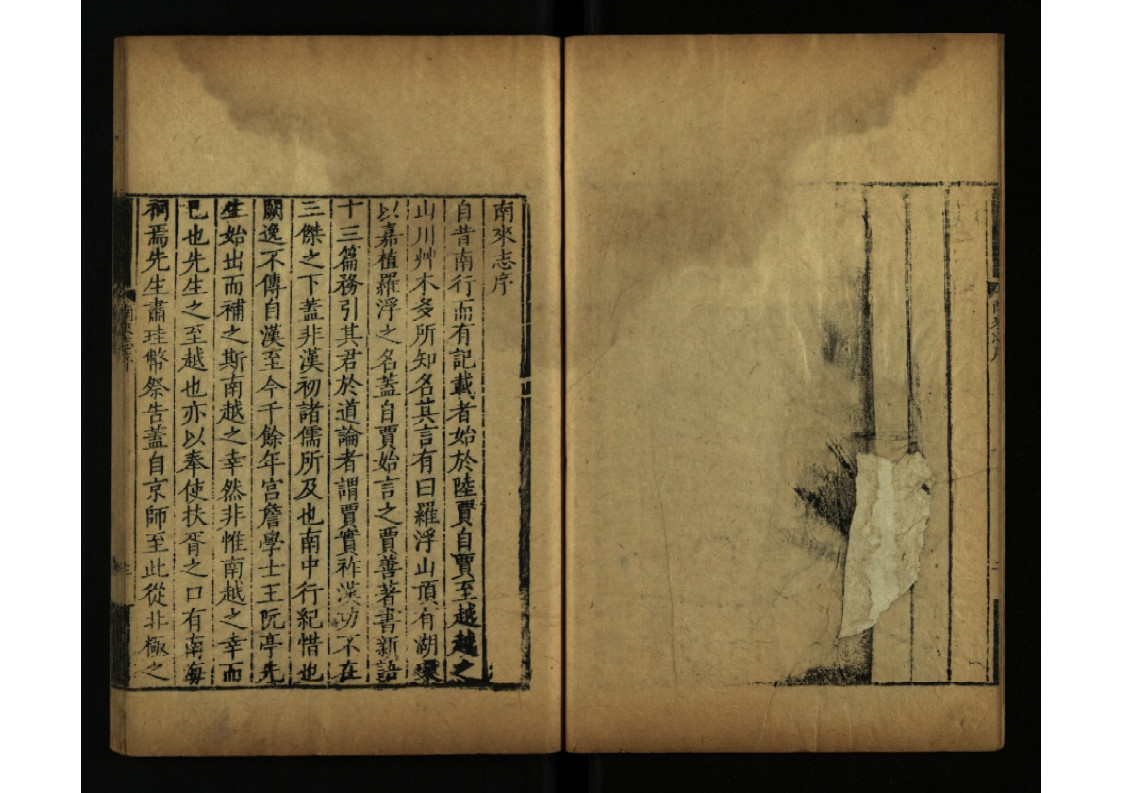 南來志序
自昔南行而有記載者始於陸賈自賈至越越之
山川艸木多所知名其言有曰羅浮山頂有湖環
以嘉植羅浮之名蓋自賈始言之賈善著書新語
十三篇務引其君於道論者謂賈實祚漢功不在
三傑之下蓋非漢初諸儒所及也南中行紀惜也
闕逸不傳自漢至今千餘年宮詹學士王阮亭先
生始出而補之斯南越之幸然非惟南越之幸而
已也先生之至越也亦以奉使扶胥之口有南海
祠焉先生肅珪幣祭告蓋自京師至此從非極之
南來志序
南來志序